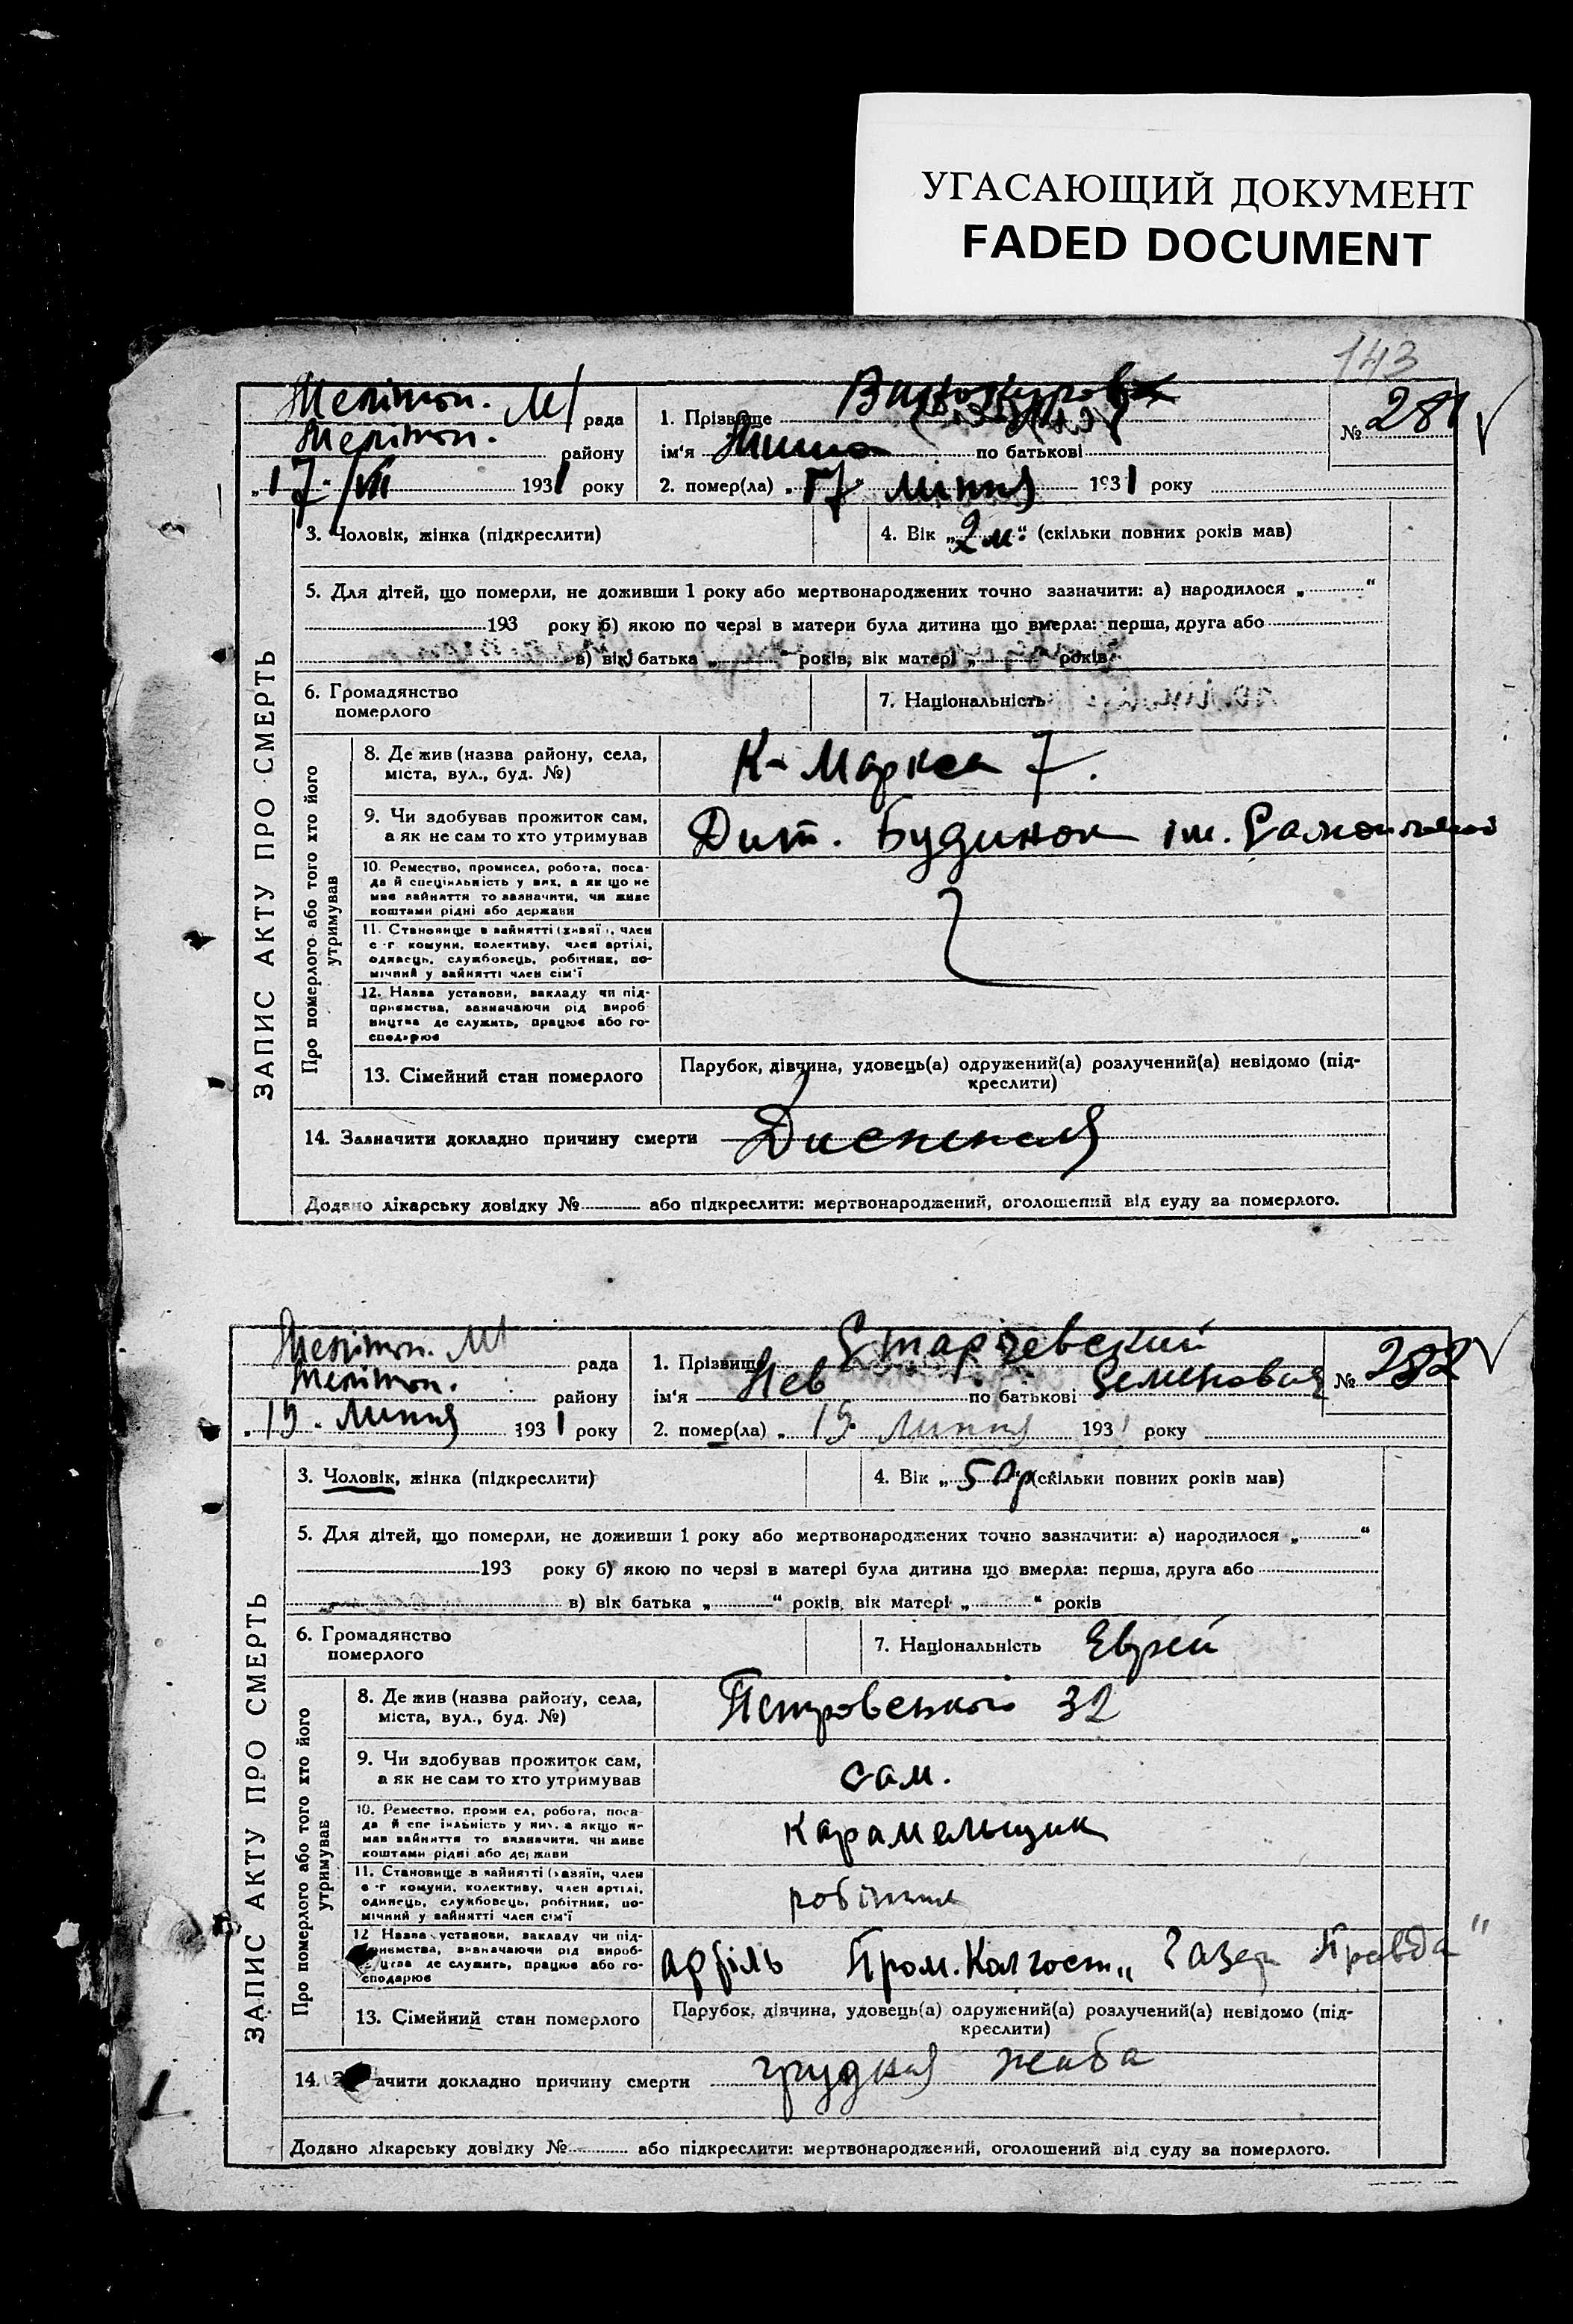 УГАСАЮЩИЙ ДОКУМЕНТ
FADED DOCUMENT
143
ЗАПИС АКТУ ПРО СМЕРТЬ
Меліт. М/ рада
Меліт. району
„17/VII 1931 року
1. Прізвище
ім'я по батькові
2. помер(ла) „17“ липня 1931 року
№ 281
3. Чоловік, жінка (підкреслити)
4. Вік „2 м.“ (скільки повних років мав)
5. Для дітей, що померли, не доживши 1 року або мертвонароджених точно зазначити: а) народилося „ “
193 року б) якою по черзі в матери була дитина що вмерла: перша, друга або
в) вік батька „ “ років, вік матері „ “ років
6. Громадянство
померлого
7. Національність
Про померлого або того хто його
утримував
8. Де жив (назва району, села,
міста, вул., буд. №)
К-Маркса 7.
9. Чи здобував прожиток сам,
а як не сам то хто утримував
Дит. Будинок ім.
10. Ремество, промисел, робота, поса-
да й спеціяльність у них, а як що не
має зайняття то зазначити, чи живе
коштами рідні або держави
11. Становище в зайнятті (хазяїн, член
с-г комуни, колективу, член артілі,
одинець, службовець, робітник, по-
мічний у зайнятті член сім'ї
12. Назва установи, закладу чи під-
приємства, зазначаючи рід вироб-
ництва де служить, працює або го-
сподарює
13. Сімейний стан померлого
Парубок, дівчина, удовець(а) одружений(а) розлучений(а) невідомо (під-
креслити)
14. Зазначити докладно причину смерти Диспепсия
Додано лікарську довідку № або підкреслити: мертвонароджений, оголошений від суду за померлого.
ЗАПИС АКТУ ПРО СМЕРТЬ
Меліт. М/ рада
Меліт. району
„19. Липня 1931 року
1. Прізвище Старчевский
ім'я Лев по батькові Семенович
2. помер(ла) „19“ Липня 1931 року
№ 282
3. Чоловік, жінка (підкреслити)
4. Вік „50 р“ (скільки повних років мав)
5. Для дітей, що померли, не доживши 1 року або мертвонароджених точно зазначити: а) народилося „ “
193 року б) якою по черзі в матері була дитина що вмерла: перша, друга або
в) вік батька „ “ років, вік матері „ “ років
6. Громадянство
померлого
7. Національність Еврей
Про померлого або того хто його
утримував
8. Де жив (назва району, села,
міста, вул., буд. №)
Петровського 32
9. Чи здобував прожиток сам,
а як не сам то хто утримував
сам.
10. Ремество, промисел, робота, поса-
да й спеціяльність у них, а якщо не
має зайняття то зазначити, чи живе
коштами рідні або держави
карамельщик
11. Становище в зайнятті (хазяїн, член
с-г комуни, колективу, член артілі,
одинець, службовець, робітник, по-
мічний у зайнятті член сім'ї
робітник
12 Назва установи, закладу чи під-
приємства, зазначаючи рід вироб-
ництва де служить, працює або го-
сподарює
артіль Пром. Колгосп „Газет Правда“
13. Сімейний стан померлого
Парубок, дівчина, удовець(а) одружений(а) розлучений(а) невідомо (під-
креслити)
14. Зазначити докладно причину смерти грудная жаба
Додано лікарську довідку № або підкреслити: мертвонароджений, оголошений від суду за померлого.